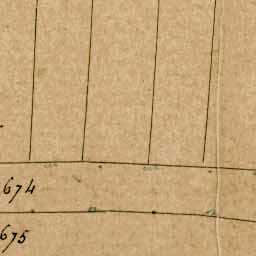 674
675